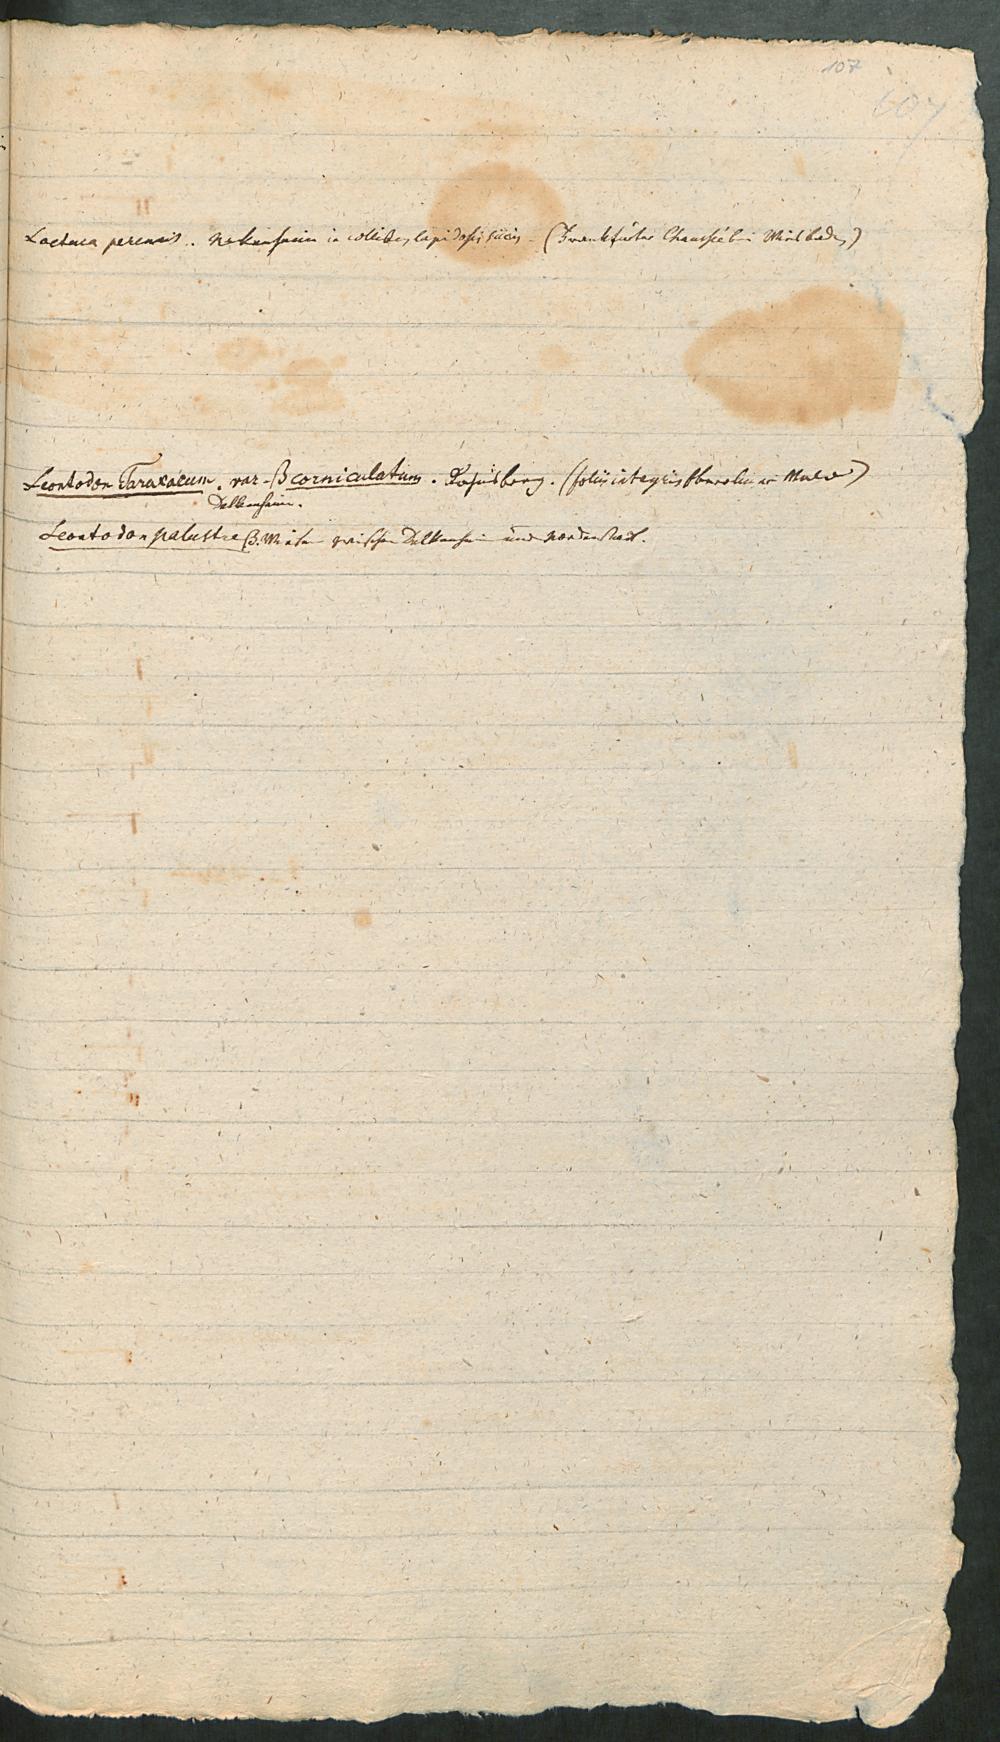 107
107
Lactuca perennis .. in collibus lapidosis siccis – (Frankfurter Chaussée bei Wiesbaden)
Leontodon Taraxacum . var – β corniculatum . (foliis integris
Delkenheim.
Leontodon palustre β. Wiesen zwischen Delkenheim und Nordenstadt.